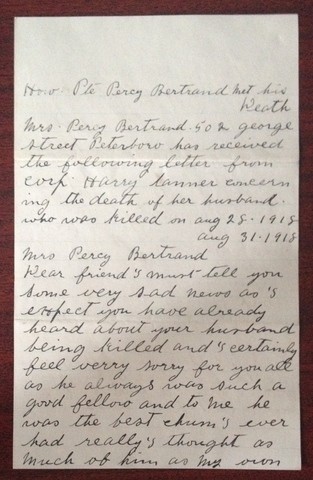 How Pte Percy Bertrand Met his
Death
Mrs. Percy Bertrand. 502 george
Street Peterboro has received
the following letter from
Corp. Harry tanner concern
ing the death of her husband.
who was killed on aug 28-1918
aug 31-1918
Mrs Percy Bertrand
Dear friend's must tell you
some very sad news as's
expect you have already
heard about your husband
being killed and's certainly
feel verry sorry for you all
as he always was such a
good fellow and to me he
was the best chum's ever
had really's thought as
much of him as my own